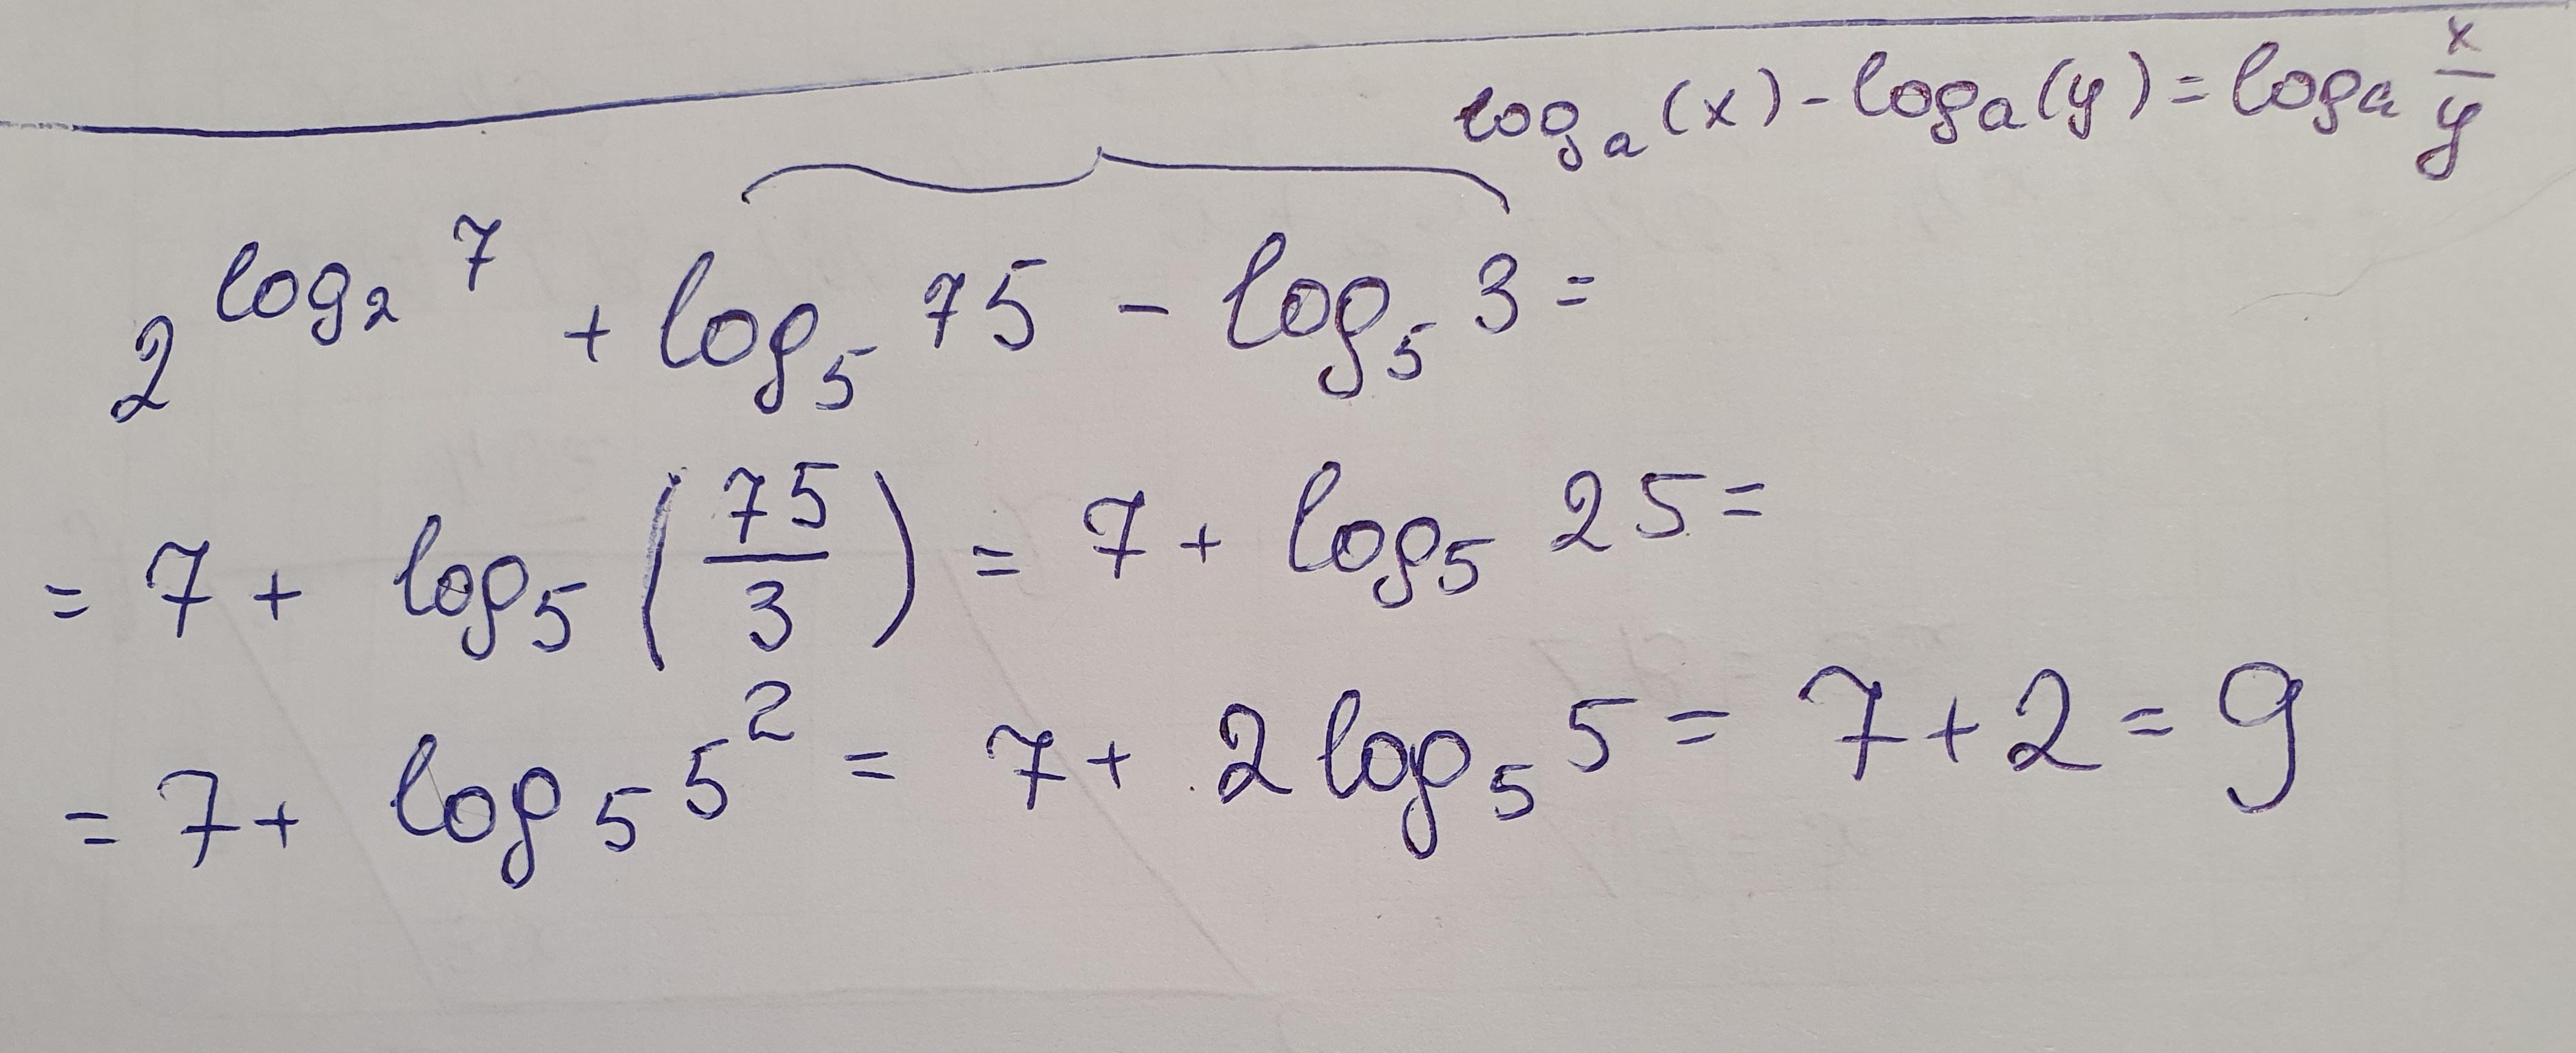 logₐ(x) - logₐ(y) = logₐ x/y
2^(log₂ 7) + log₅ 75 - log₅ 3 =
= 7 + log₅ (75/3) = 7 + log₅ 25 =
= 7 + log₅ 5² = 7 + 2 log₅ 5 = 7 + 2 = 9